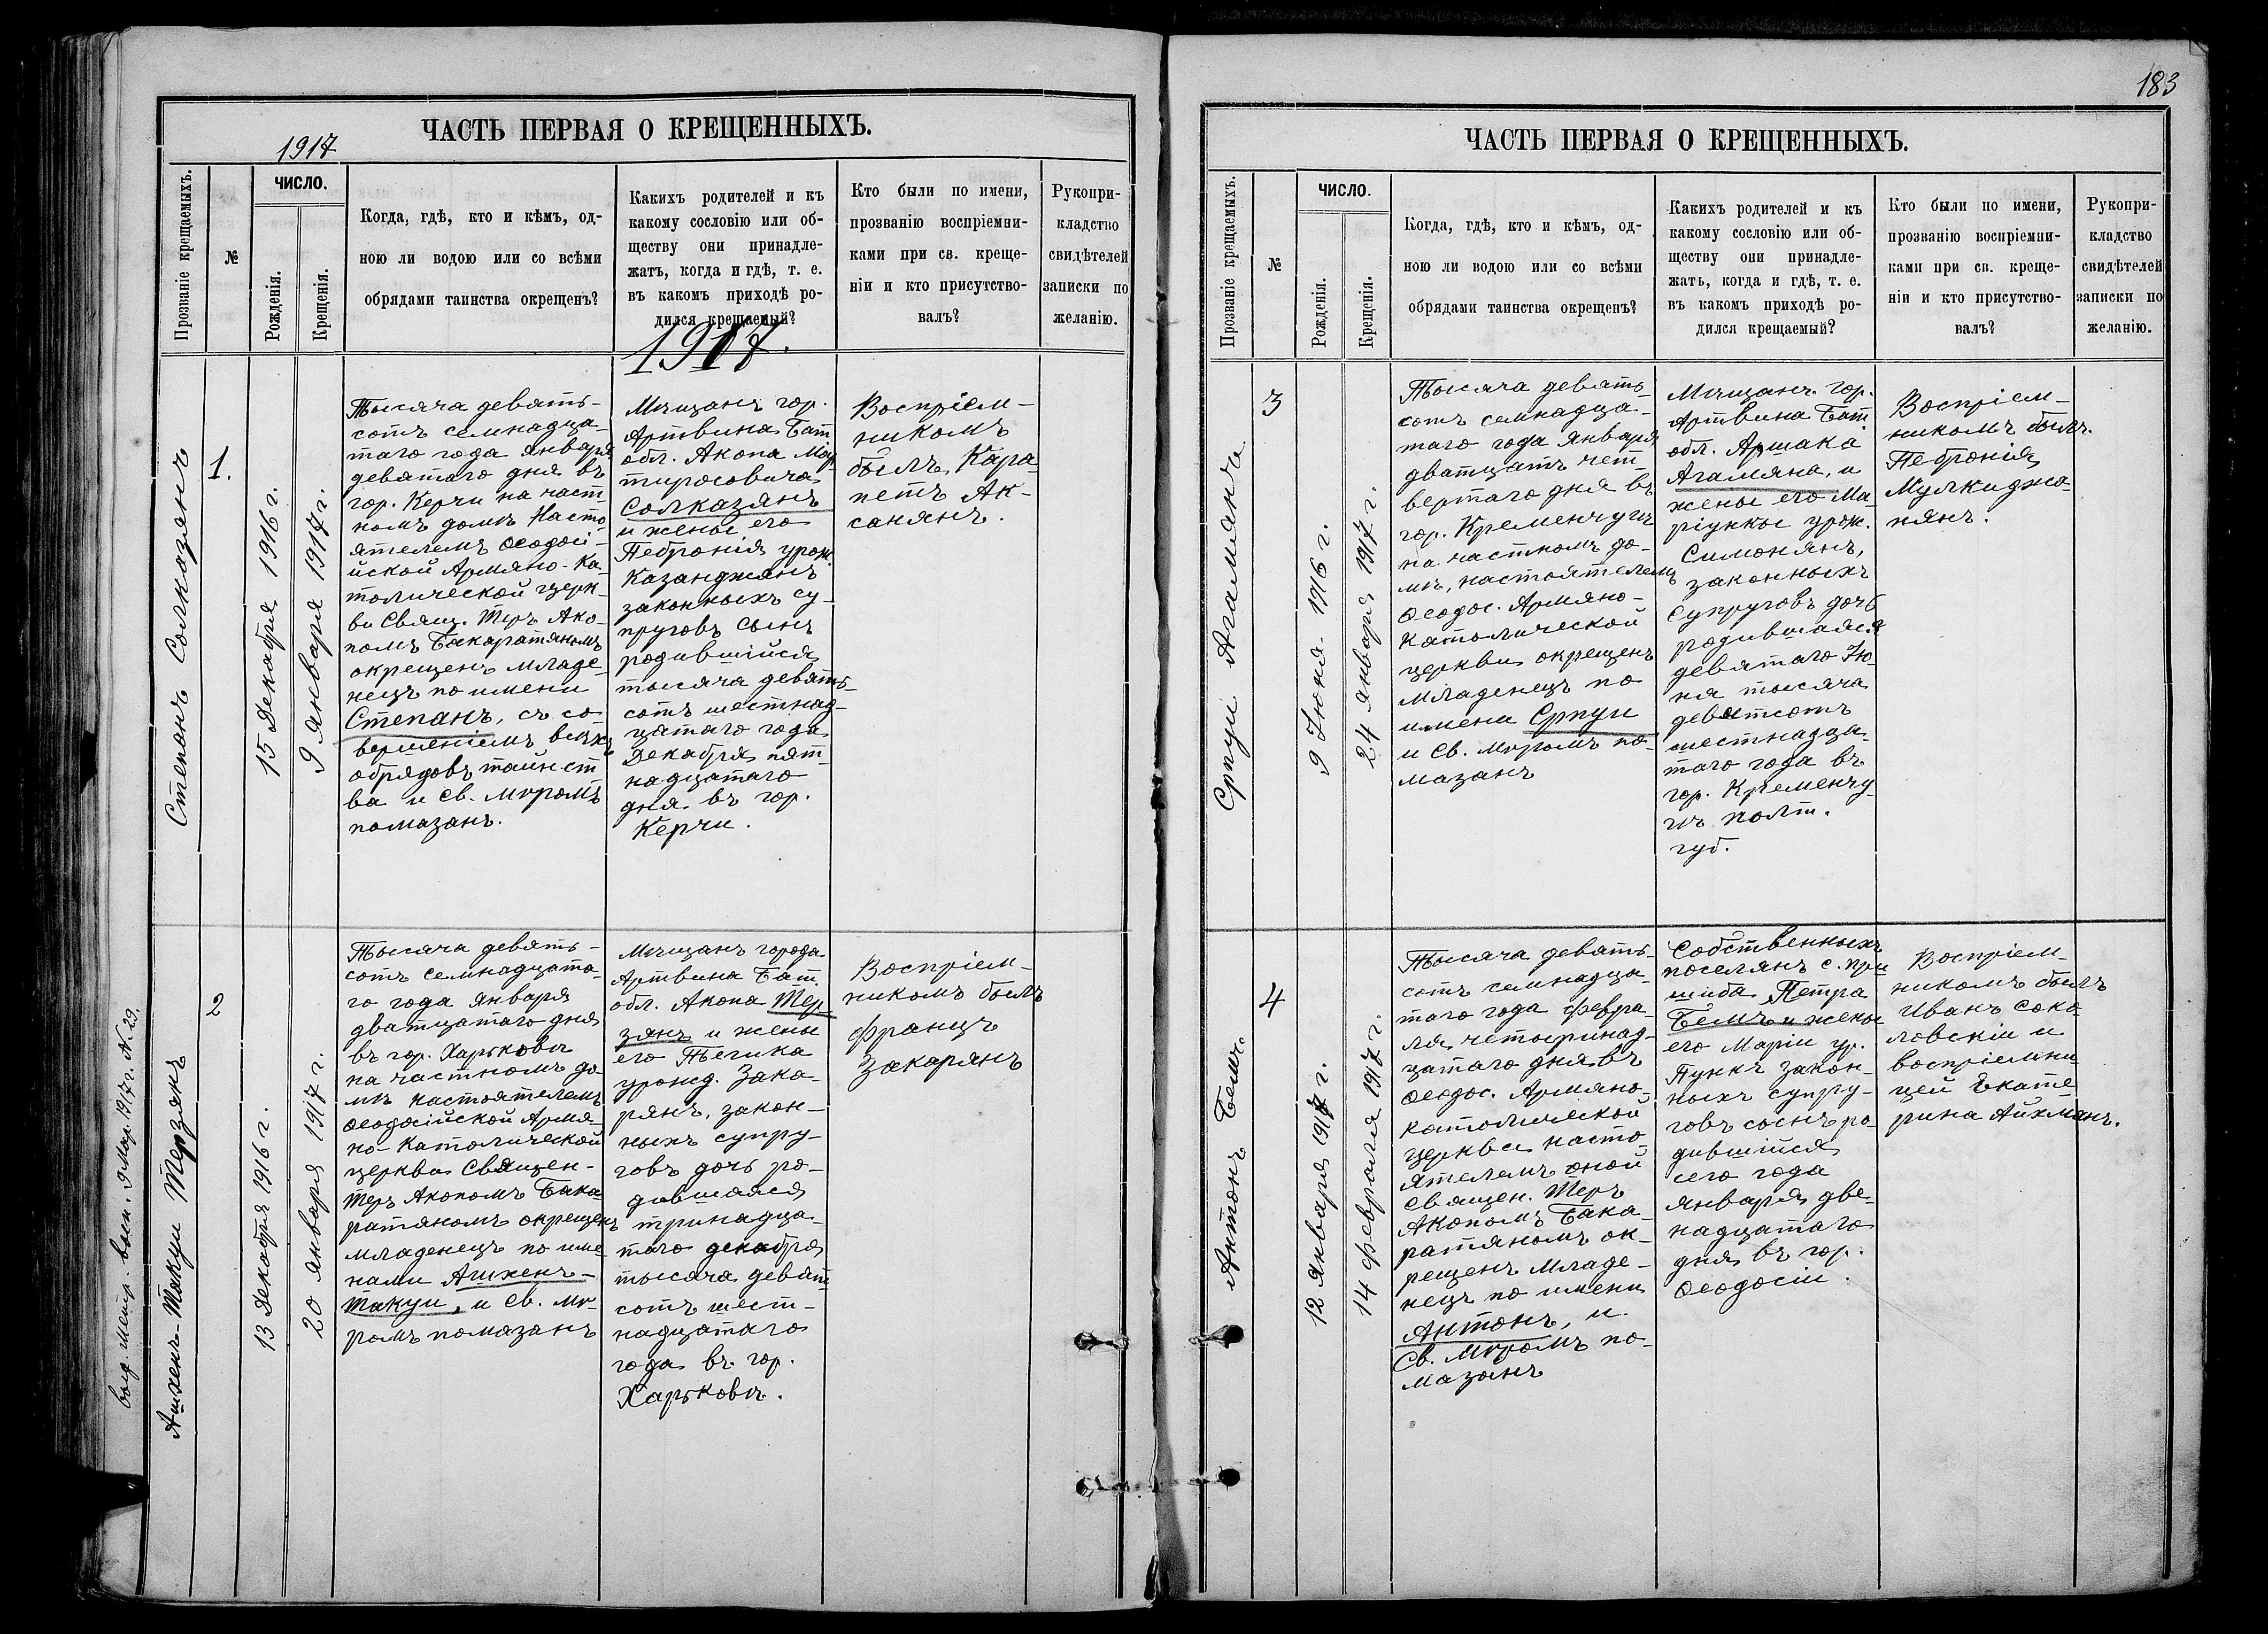 ЧАСТЬ ПЕРВАЯ О КРЕЩЕННЫХЪ.
1917
Прозваніе крещаемыхъ.
№
ЧИСЛО.
Рожденія.
Крещенія.
Когда, гдѣ, кто и кѣмъ, од-
ною ли водою или со всѣми
обрядами таинства окрещенъ?
Какихъ родителей и къ
какому сословію или об-
ществу они принадле-
жатъ, когда и гдѣ, т. е.
въ какомъ приходѣ ро-
дился крещаемый?
Кто были по имени,
прозванію воспріемни-
ками при св. креще-
ніи и кто присутство-
валъ?
Рукопри-
кладство
свидѣтелей
записки по
желанію.
1917.
Степанъ Солказянъ
1.
15 Декабря 1916 г.
9 Января 1917 г.
Тысяча девять-
сотъ семнадца-
таго года Января
девятаго дня въ
гор. Керчи на част-
номъ домѣ Насто-
ятелемъ Ѳеодосі-
йской Армяно-Ка-
толической церк-
ви Свящ. Теръ Ако-
помъ Бакаратяномъ
окрещенъ младе-
нецъ по имени
Степанъ, съ со-
вершеніемъ всѣхъ
обрядовъ таинст
ва и св. мѵромъ
помазанъ.
Мѣщанъ гор.
Артвина Бат.
обл. Акопа Мар
тиросовича
Солказянъ
и жены его
Пебронія урож.
Казанджянъ
законныхъ су-
пруговъ сынъ
родившійся
тысяча девять-
сотъ шестнад-
цатаго года
Декабря пят
надцатаго
дня въ гор.
Керчи.
Воспріем-
никомъ
былъ Кара-
петъ Ак-
санянъ.
выд. метр. вып. 9 мар. 1917 г. N. 29.
Ашхенъ-Такуи Терзянъ
2
13 Декабря 1916 г.
20 января 1917 г.
Тысяча девять-
сотъ семнадцата-
го года Января
дватцатаго дня
въ гор. Харьковѣ
на частномъ до-
мѣ настоятелемъ
Ѳеодосійской Армя-
но-Католической
церкви Священ-
Теръ Акопомъ Бака
ратяномъ окрещенъ
младенецъ по име
нами Ашхенъ-
Такуи, и св. мѵ-
ромъ помазанъ
Мѣщанъ города
Артвина Бат.
обл. Акопа Тер
зянъ и жены
его Тьгика
урожд. Зака-
рянъ, закон-
ныхъ супру-
говъ дочь ро-
дившаяся
тринадца-
таго декабря
тысяча девят
сотъ шест-
надцатаго
года въ гор.
Харьковѣ.
Воспріем-
никомъ былъ
Францъ
Закарянъ
183
ЧАСТЬ ПЕРВАЯ О КРЕЩЕННЫХЪ.
Прозваніе крещаемыхъ.
№
ЧИСЛО.
Рожденія.
Крещенія.
Когда, гдѣ, кто и кѣмъ, од-
ною ли водою или со всѣми
обрядами таинства окрещенъ?
Какихъ родителей и къ
какому сословію или об-
ществу они принадле-
жатъ, когда и гдѣ, т. е.
въ какомъ приходѣ ро-
дился крещаемый?
Кто были по имени,
прозванію воспріемни-
ками при св. креще-
ніи и кто присутство-
валъ?
Рукопри-
кладство
свидѣтелей
записки по
желанію.
Српуи Агамянъ
3
9 Іюня 1916 г.
24 января 1917 г.
Тысяча девять
сотъ семнадца-
таго года января
дватцать чет-
вертаго дня въ
гор. Кременчугѣ
на частномъ до-
мѣ, настоятелемъ
Ѳеодос. Армяно-
Католической
церкви окрещенъ
младенецъ по
имени Српуи
и св. мѵромъ по-
мазанъ
Мѣщанъ гор.
Артвина Бат
обл. Аршака
Агамяна, и
жены его Ма-
ріункы урж.
Симонянъ,
законныхъ
супруговъ дочь
родившаяся
девятаго Ію-
ня тысяча
девятсотъ
шестнадца-
таго года въ
гор. Кременчу-
гѣ полт.
губ.
Воспріем-
никомъ былъ
Пебронія
Мулкиджа-
нянъ.
Антонъ Бемъ
4
12 Января 1917 г.
14 февраля 1917 г.
Тысяча девять-
сотъ семнадца-
таго года Февра-
ля, четырнад-
цатаго дня въ
Ѳеодос. Армяно-
католической
церкви насто-
ятелемъ оной
священ. Теръ
Акопомъ Бака-
ратяномъ ок-
рещенъ младе-
нецъ по имени
Антонъ, и
св. мѵромъ по-
мазанъ
Собственныхъ
поселянъ с. при
шиба, Петра
Бемъ и жены
его Маріи ур.
Пункъ закон-
ныхъ супру-
говъ сынъ ро-
дившійся
сего года
января две-
надцатаго
дня въ гор.
Ѳеодосіи.
Воспріем-
никомъ былъ
Иванъ Соко-
ловскій и
воспріемни-
цей Екате
рина Айхманъ.